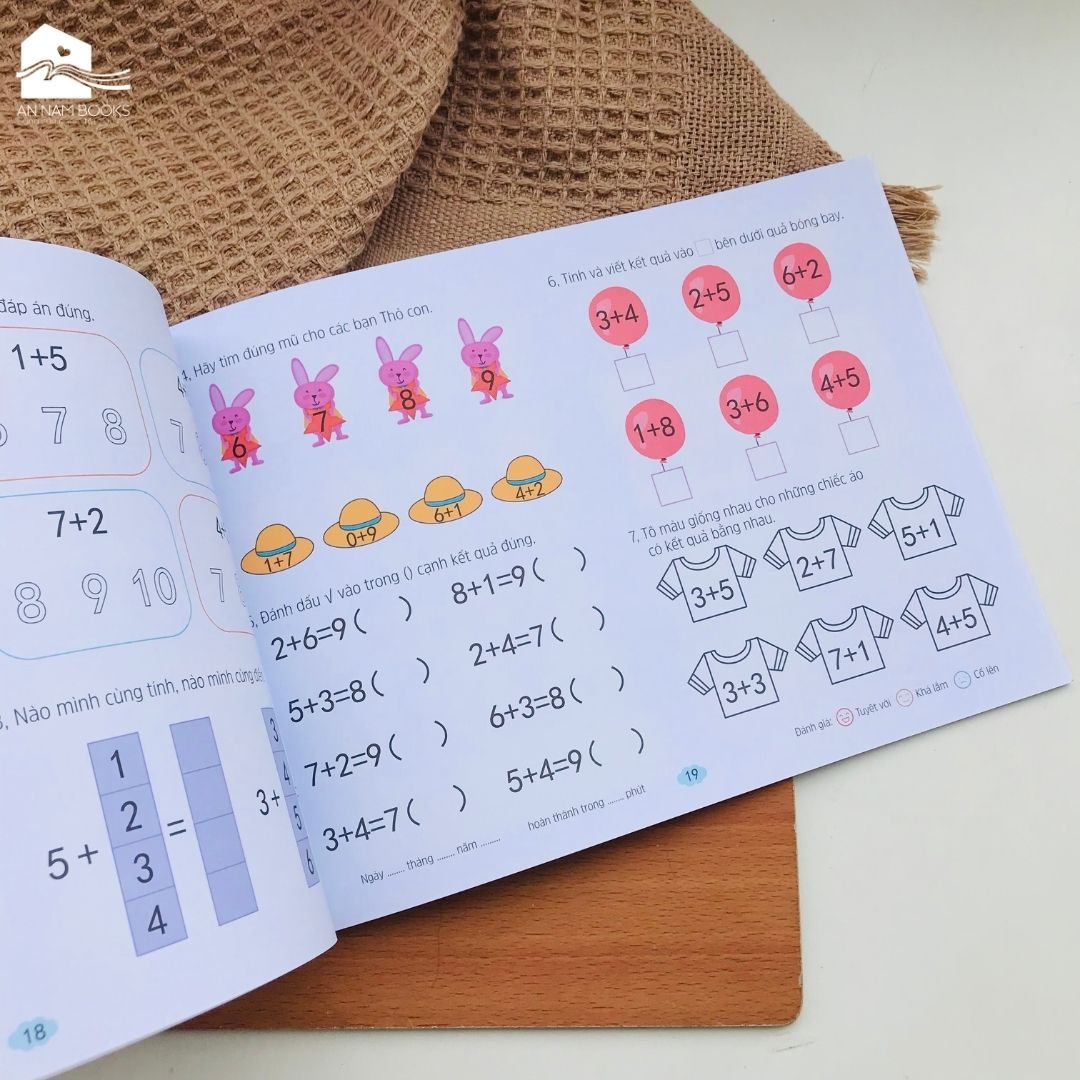 AN NAM BOOKS
đáp án đúng.
1+5
7 8
7
7+2
8 9 10
7
3, Nào mình cùng tính, nào mình cùng
5 +
1
2
3
4
=
3+
3
4
5
6
18
4, Hãy tìm đúng mũ cho các bạn Thỏ con.
6 7 8 9
1+7 0+9 6+1 4+2
5, Đánh dấu √ vào trong () cạnh kết quả đúng.
2+6=9 ( ) 8+1=9 ( )
5+3=8 ( ) 2+4=7 ( )
7+2=9 ( ) 6+3=8 ( )
3+4=7 ( ) 5+4=9 ( )
Ngày ........ tháng ........ năm ......... hoàn thành trong ........ phút
6, Tính và viết kết quả vào □ bên dưới quả bóng bay.
3+4 2+5 6+2
1+8 3+6 4+5
7, Tô màu giống nhau cho những chiếc áo
có kết quả bằng nhau.
3+5 2+7 5+1
3+3 7+1 4+5
Đánh giá: Tuyệt vời Khá lắm Cố lên
19